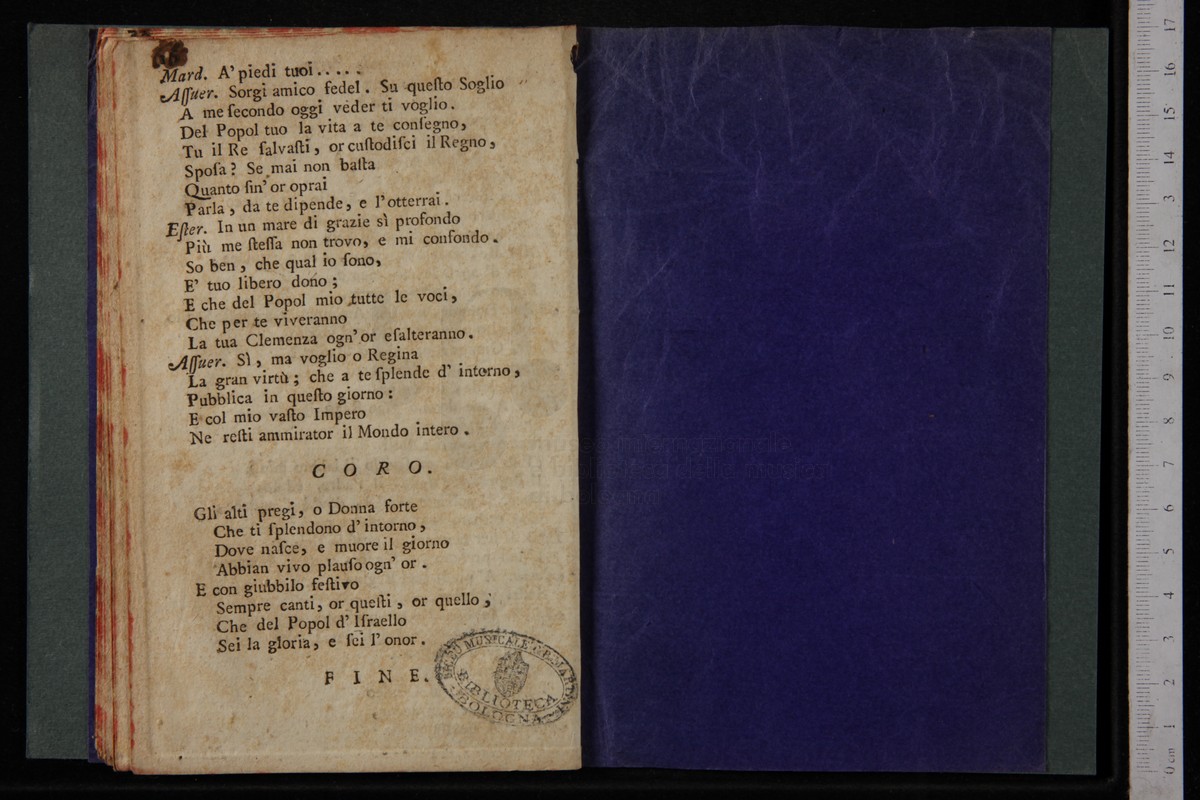 Mard. A' piedi tuoi.....
Aſſuer. Sorgi amico fedel. Su queſto Soglio
A me ſecondo oggi veder ti voglio.
Del Popol tuo la vita a te conſegno,
Tu il Re ſalvaſti, or cuſtodiſci il Regno,
Spoſa? Se mai non baſta
Quanto ſin' or oprai
Parla, da te dipende, e l'otterrai.
Eſter. In un mare di grazie sì profondo
Più me ſteſſa non trovo, e mi confondo.
So ben, che qual io ſono,
E' tuo libero dono;
E che del Popol mio tutte le voci,
Che per te viveranno
La tua Clemenza ogn'or eſalteranno.
Aſſuer. Sì, ma voglio o Regina
La gran virtù; che a te ſplende d' intorno,
Pubblica in queſto giorno:
E col mio vaſto Impero
Ne reſti ammirator il Mondo intero.
CORO.
Gli alti pregi, o Donna forte
Che ti ſplendono d' intorno,
Dove naſce, e muore il giorno
Abbian vivo plauſo ogn' or.
E con giubbilo feſtivo
Sempre canti, or queſti, or quello;
Che del Popol d' Iſraello
Sei la gloria, e ſei l' onor.
FINE.
MUSICALE G.B. MARTINI
BIBLIOTECA
BOLOGNA
17
16
15
14
3
12
11
10
9
8
7
6
5
4
3
2
1
0 cm